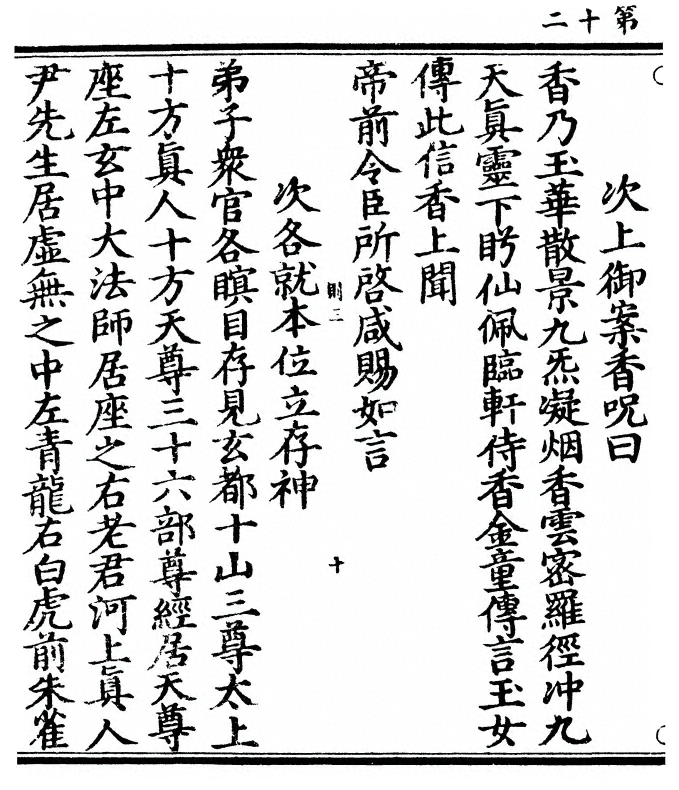 第十二
次上御案香呪曰
香乃玉華散景九炁凝烟香雲密羅徑冲九
天眞靈下盻仙佩臨軒侍香金童傳言玉女
傳此信香上聞
帝前令臣所啓咸賜如言
則三
十
次各就本位立存神
弟子衆官各瞑目存見玄都十山三尊太上
十方眞人十方天尊三十六部尊經居天尊
座左玄中大法師居座之右老君河上眞人
尹先生居虛無之中左青龍右白虎前朱雀